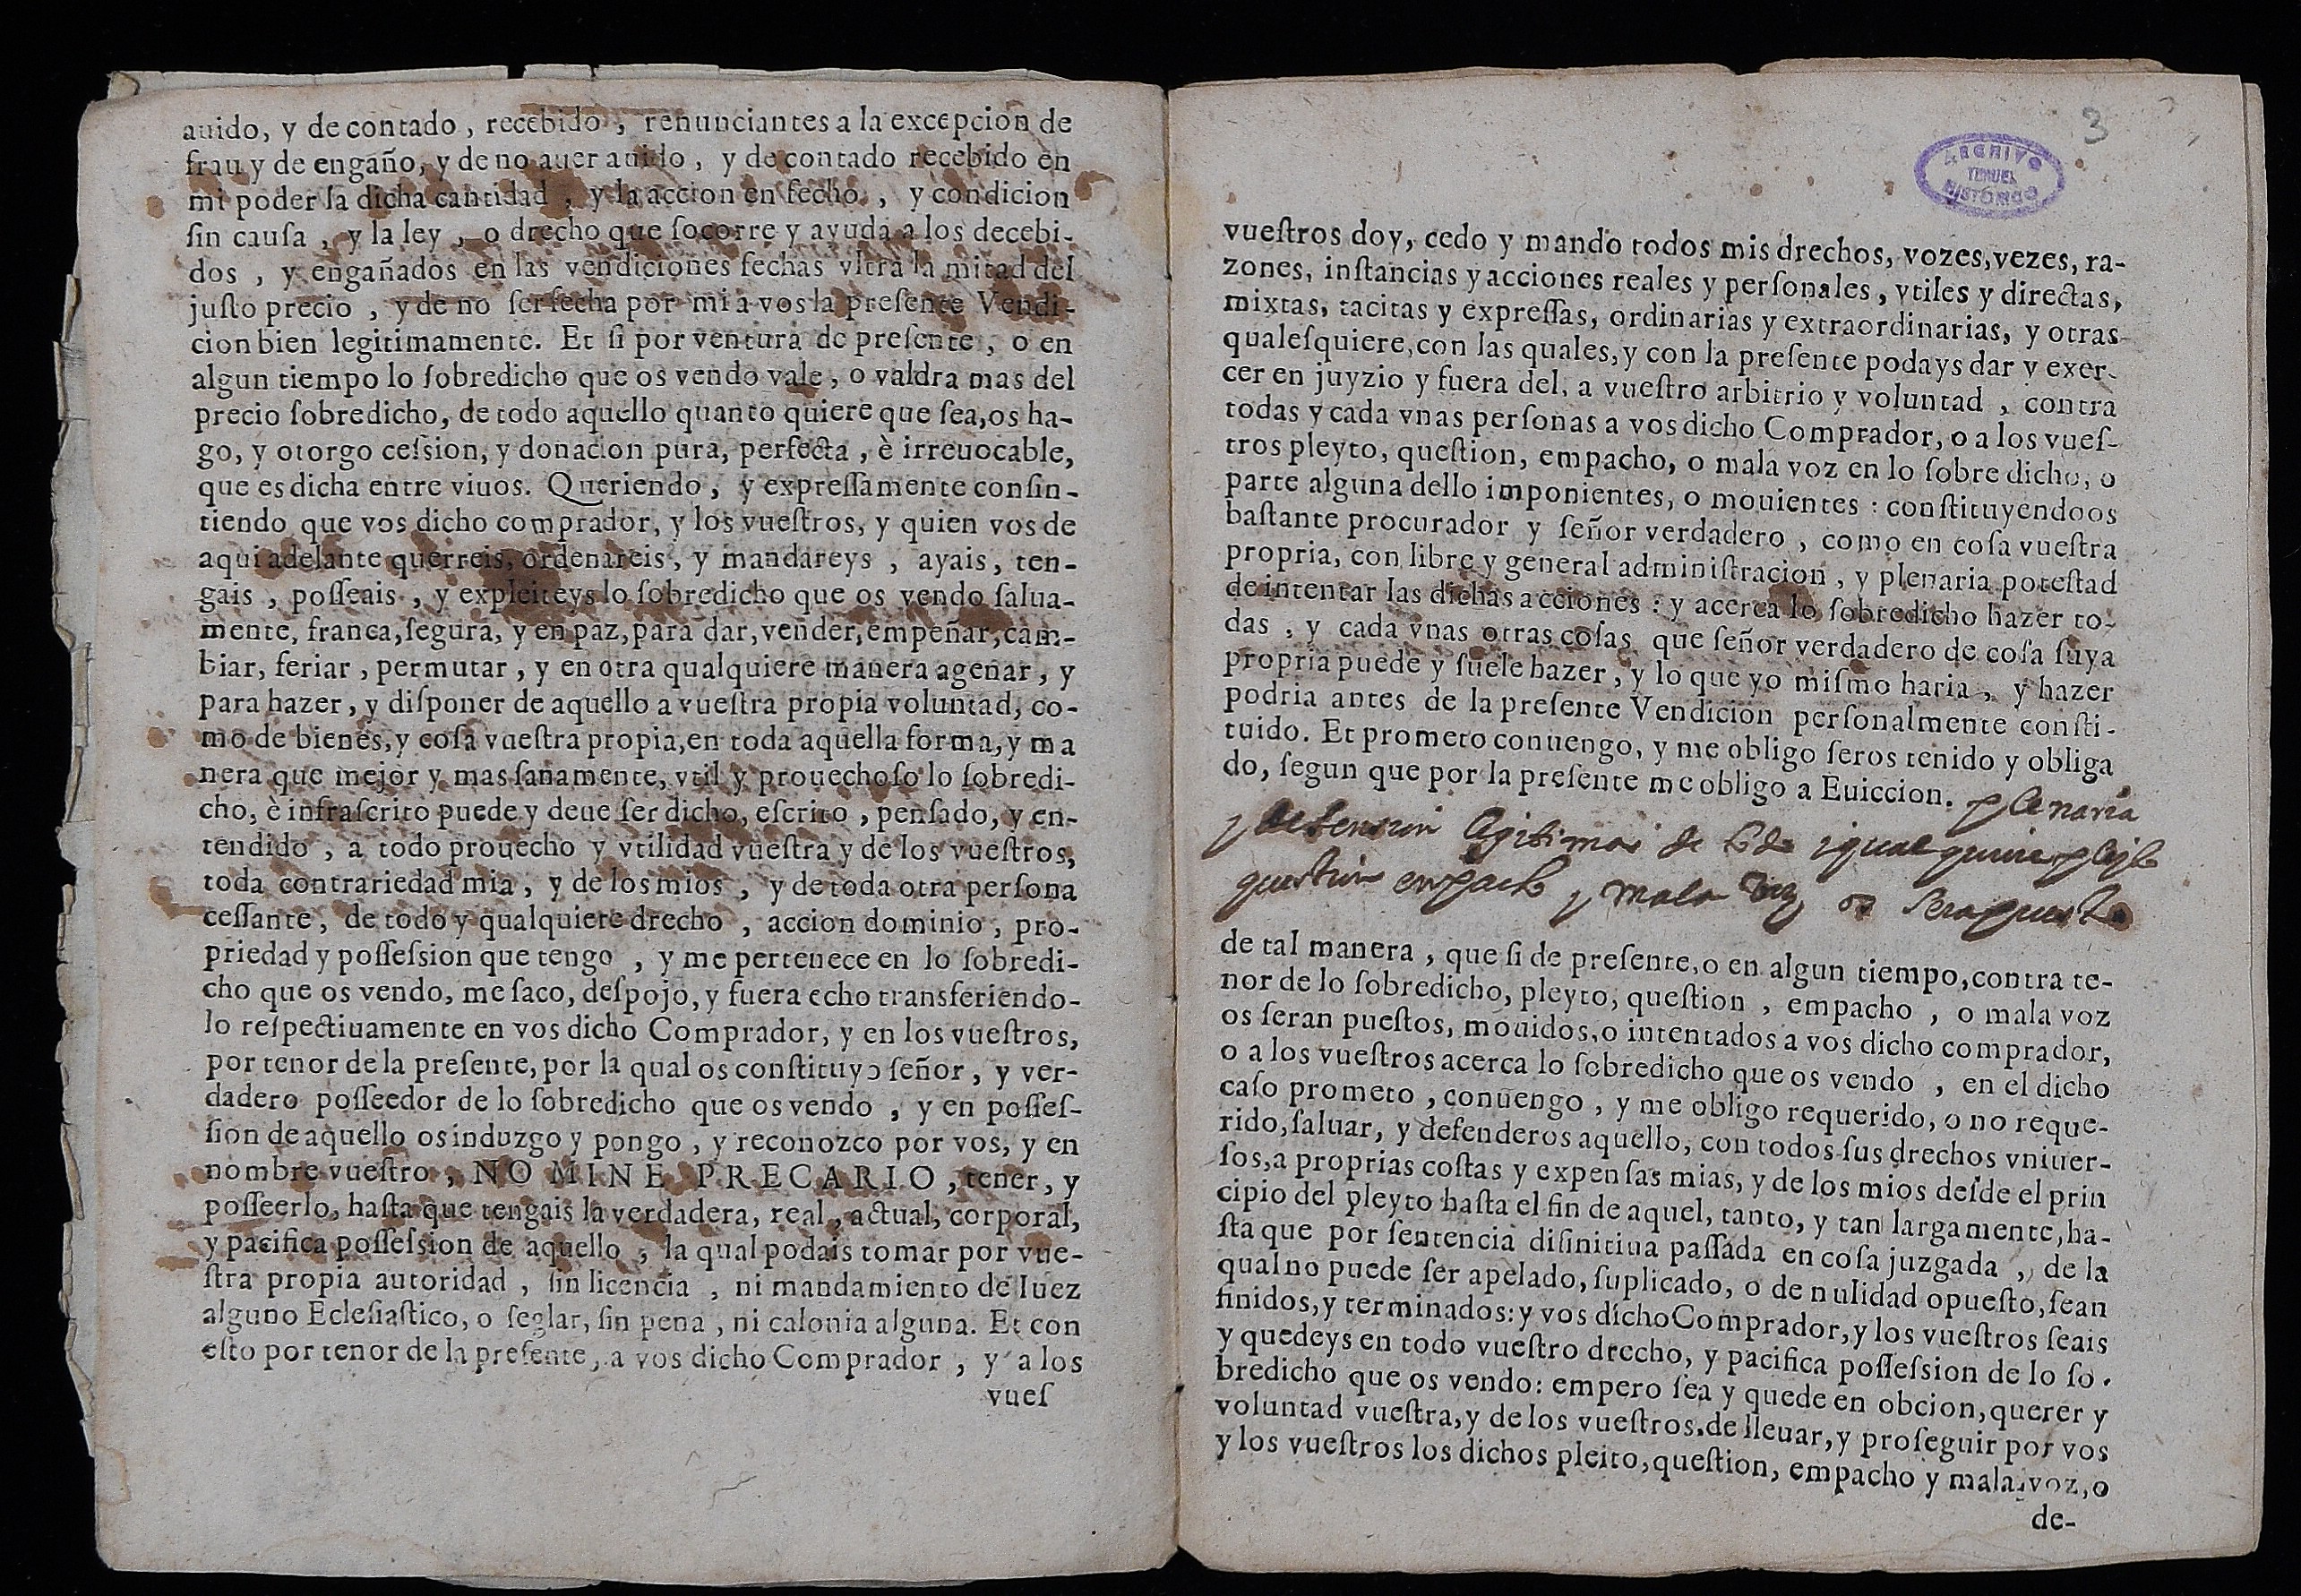 auido, y de contado, recebido, renunciantes a la excepcion de
frau y de engaño, y de no auer auido, y de contado recebido en
mi poder la dicha cantidad, y la accion en fecho, y condicion
ſin cauſa, y la ley, o drecho que ſocorre y ayuda a los decebi-
dos, y engañados en las vendiciones fechas vltra la mitad del
juſto precio, y de no ſer fecha por mi a vos la preſente Vendi-
cion bien legitimamente. Et ſi por ventura de preſente, o en
algun tiempo lo ſobredicho que os vendo vale, o valdra mas del
precio ſobredicho, de todo aquello quanto quiere que ſea, os ha-
go, y otorgo ceſsion, y donacion pura, perfecta, è irreuocable,
que es dicha entre viuos. Queriendo, y expreſſamente conſin-
tiendo que vos dicho comprador, y los vueſtros, y quien vos de
aqui adelante querreis, ordenareis, y mandareys, ayais, ten-
gais, poſſeais, y expleiteys lo ſobredicho que os vendo ſalua-
mente, franca, ſegura, y en paz, para dar, vender, empeñar, cam-
biar, feriar, permutar, y en otra qualquiere manera agenar, y
para hazer, y diſponer de aquello a vueſtra propia voluntad, co-
mo de bienes, y coſa vueſtra propia, en toda aquella forma, y ma
nera que mejor y mas ſanamente, vtil y prouechoſo lo ſobredi-
cho, è infraſcrito puede y deue ſer dicho, eſcrito, penſado, y en-
tendido, a todo prouecho y vtilidad vueſtra y de los vueſtros,
toda contrariedad mia, y de los mios, y de toda otra perſona
ceſſante, de todo y qualquiere drecho, accion dominio, pro-
priedad y poſſeſsion que tengo, y me pertenece en lo ſobredi-
cho que os vendo, me ſaco, deſpojo, y fuera echo transferiendo-
lo reſpectiuamente en vos dicho Comprador, y en los vueſtros,
por tenor de la preſente, por la qual os conſtituyo ſeñor, y ver-
dadero poſſeedor de lo ſobredicho que os vendo, y en poſſeſ-
ſion de aquello os induzgo y pongo, y reconozco por vos, y en
nombre vueſtro, NOMINE PRECARIO, tener, y
poſſeerlo, haſta que tengais la verdadera, real, actual, corporal,
y pacifica poſſeſsion de aquello, la qual podais tomar por vue-
ſtra propia autoridad, ſin licencia, ni mandamiento de Iuez
alguno Ecleſiaſtico, o ſeglar, ſin pena, ni calonia alguna. Et con
eſto por tenor de la preſente, a vos dicho Comprador, y a los
vueſ
3
ARCHIVO
TERUEL
HISTORICO
vueſtros doy, cedo y mando todos mis drechos, vozes, vezes, ra-
zones, inſtancias y acciones reales y perſonales, vtiles y directas,
mixtas, tacitas y expreſſas, ordinarias y extraordinarias, y otras
qualeſquiere, con las quales, y con la preſente podays dar y exer-
cer en juyzio y fuera del, a vueſtro arbitrio y voluntad, contra
todas y cada vnas perſonas a vos dicho Comprador, o a los vueſ-
tros pleyto, queſtion, empacho, o mala voz en lo ſobre dicho, o
parte alguna dello imponientes, o mouientes: conſtituyendoos
baſtante procurador y ſeñor verdadero, como en coſa vueſtra
propria, con libre y general adminiſtracion, y plenaria poteſtad
de intentar las dichas acciones: y acerca lo ſobredicho hazer to-
das, y cada vnas otras coſas que ſeñor verdadero de coſa ſuya
propria puede y ſuele hazer, y lo que yo miſmo haria, y hazer
podria antes de la preſente Vendicion perſonalmente conſti-
tuido. Et prometo conuengo, y me obligo ſeros tenido y obliga
do, ſegun que por la preſente me obligo a Euiccion. plenaria
y defension legitimas de todo y qualquiere pleyto
question enpacho y mala voz os sera puesto
de tal manera, que ſi de preſente, o en algun tiempo, contra te-
nor de lo ſobredicho, pleyto, queſtion, empacho, o mala voz
os ſeran pueſtos, mouidos, o intentados a vos dicho comprador,
o a los vueſtros acerca lo ſobredicho que os vendo, en el dicho
caſo prometo, conuengo, y me obligo requerido, o no reque-
rido, ſaluar, y defenderos aquello, con todos ſus drechos vniuer-
ſos, a proprias coſtas y expenſas mias, y de los mios deſde el prin
cipio del pleyto haſta el fin de aquel, tanto, y tan largamente, ha-
ſta que por ſentencia difinitiua paſſada en coſa juzgada, de la
qual no puede ſer apelado, ſuplicado, o de nulidad opueſto, ſean
finidos, y terminados: y vos dicho Comprador, y los vueſtros ſeais
y quedeys en todo vueſtro drecho, y pacifica poſſeſsion de lo ſo-
bredicho que os vendo: empero ſea y quede en obcion, querer y
voluntad vueſtra, y de los vueſtros, de lleuar, y proſeguir por vos
y los vueſtros los dichos pleito, queſtion, empacho y mala voz, o
de-